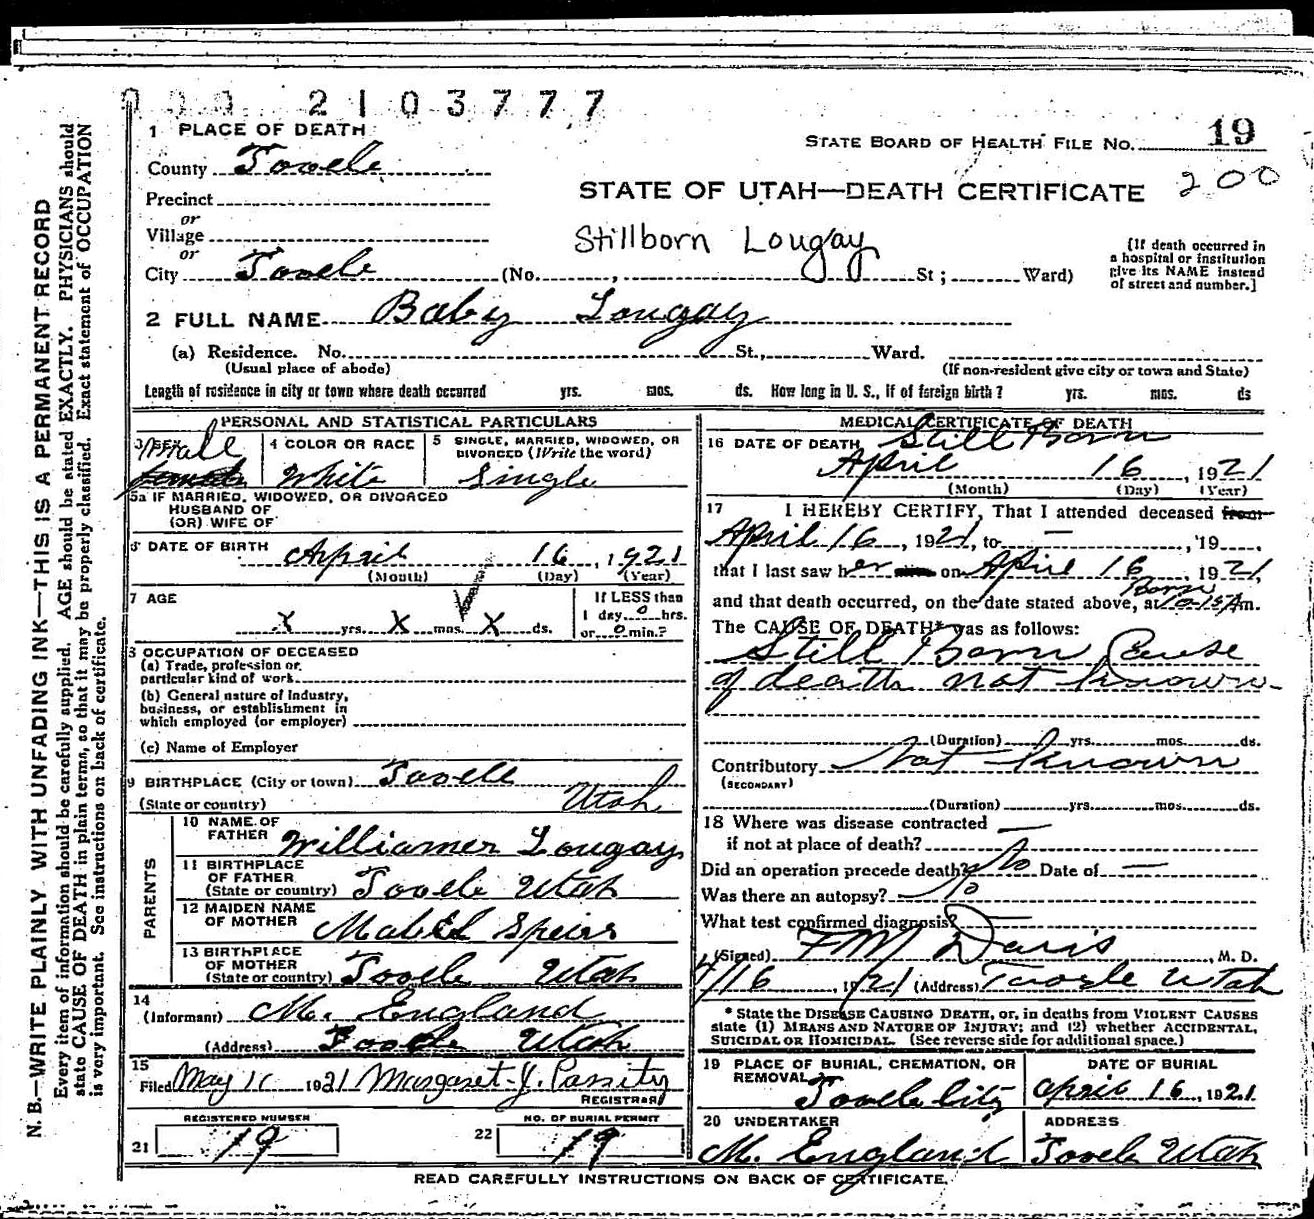 000 2103777
1 PLACE OF DEATH
STATE BOARD OF HEALTH FILE NO. 19
County Tooele
200
STATE OF UTAH—DEATH CERTIFICATE
Precinct
or
Village
Stillborn Lougay
or
City Tooele (No. , St; Ward)
[If death occurred in
a hospital or institution
give its NAME instead
of street and number.]
2 FULL NAME Baby Lougay
(a) Residence. No. St., Ward.
(Usual place of abode)
(If non-resident give city or town and State)
Length of residence in city or town where death occurred yrs. mos. ds. How long in U. S., if of foreign birth? yrs. mos. ds
PERSONAL AND STATISTICAL PARTICULARS
3 SEX
Male
4 COLOR OR RACE
White
5 SINGLE, MARRIED, WIDOWED, OR
DIVORCED (Write the word)
Single
5a IF MARRIED, WIDOWED, OR DIVORCED
HUSBAND OF
(OR) WIFE OF
6 DATE OF BIRTH April 16, 1921
(Month) (Day) (Year)
7 AGE
X yrs. X mos. X ds.
If LESS than
1 day 0 hrs.
or 0 min.?
8 OCCUPATION OF DECEASED
(a) Trade, profession or
particular kind of work
(b) General nature of Industry,
business, or establishment in
which employed (or employer)
(c) Name of Employer
9 BIRTHPLACE (City or town) Tooele
(State or country) Utah
PARENTS
10 NAME OF
FATHER Williamer Lougay
11 BIRTHPLACE
OF FATHER
(State or country) Tooele Utah
12 MAIDEN NAME
OF MOTHER Mabel Speirs
13 BIRTHPLACE
OF MOTHER
(State or country) Tooele Utah
14
(Informant) M. England
(Address) Tooele Utah
15
Filed May 1921 Margaret J.
REGISTRAR
REGISTERED NUMBER
21 19
NO. OF BURIAL PERMIT
22 19
MEDICAL CERTIFICATE OF DEATH
16 DATE OF DEATH Still Born
April 16, 1921
(Month) (Day) (Year)
17 I HEREBY CERTIFY, That I attended deceased from
April 16, 1921, to — , 19
that I last saw her on April 16 1921,
Born
and that death occurred, on the date stated above, at 10-15 Am.
The CAUSE OF DEATH* was as follows:
Still Born Cause
of death not known
(Duration) yrs. mos. ds.
Contributory Not Known
(SECONDARY)
(Duration) yrs. mos. ds.
18 Where was disease contracted
if not at place of death? —
Did an operation precede death? No Date of —
Was there an autopsy? No
What test confirmed diagnosis?
(Signed) F M Davis, M. D.
4/16, 1921 (Address) Tooele Utah
* State the DISEASE CAUSING DEATH, or, in deaths from VIOLENT CAUSES
state (1) MEANS AND NATURE OF INJURY; and (2) whether ACCIDENTAL,
SUICIDAL OR HOMICIDAL. (See reverse side for additional space.)
19 PLACE OF BURIAL, CREMATION, OR
REMOVAL
Tooele City
DATE OF BURIAL
April 16, 1921
20 UNDERTAKER
M. England
ADDRESS
Tooele Utah
READ CAREFULLY INSTRUCTIONS ON BACK OF CERTIFICATE.
N. B.—WRITE PLAINLY WITH UNFADING INK—THIS IS A PERMANENT RECORD
Every item of information should be carefully supplied. AGE should be stated EXACTLY. PHYSICIANS should
state CAUSE OF DEATH in plain terms, so that it may be properly classified. Exact statement of OCCUPATION
is very important. See instructions on back of certificate.